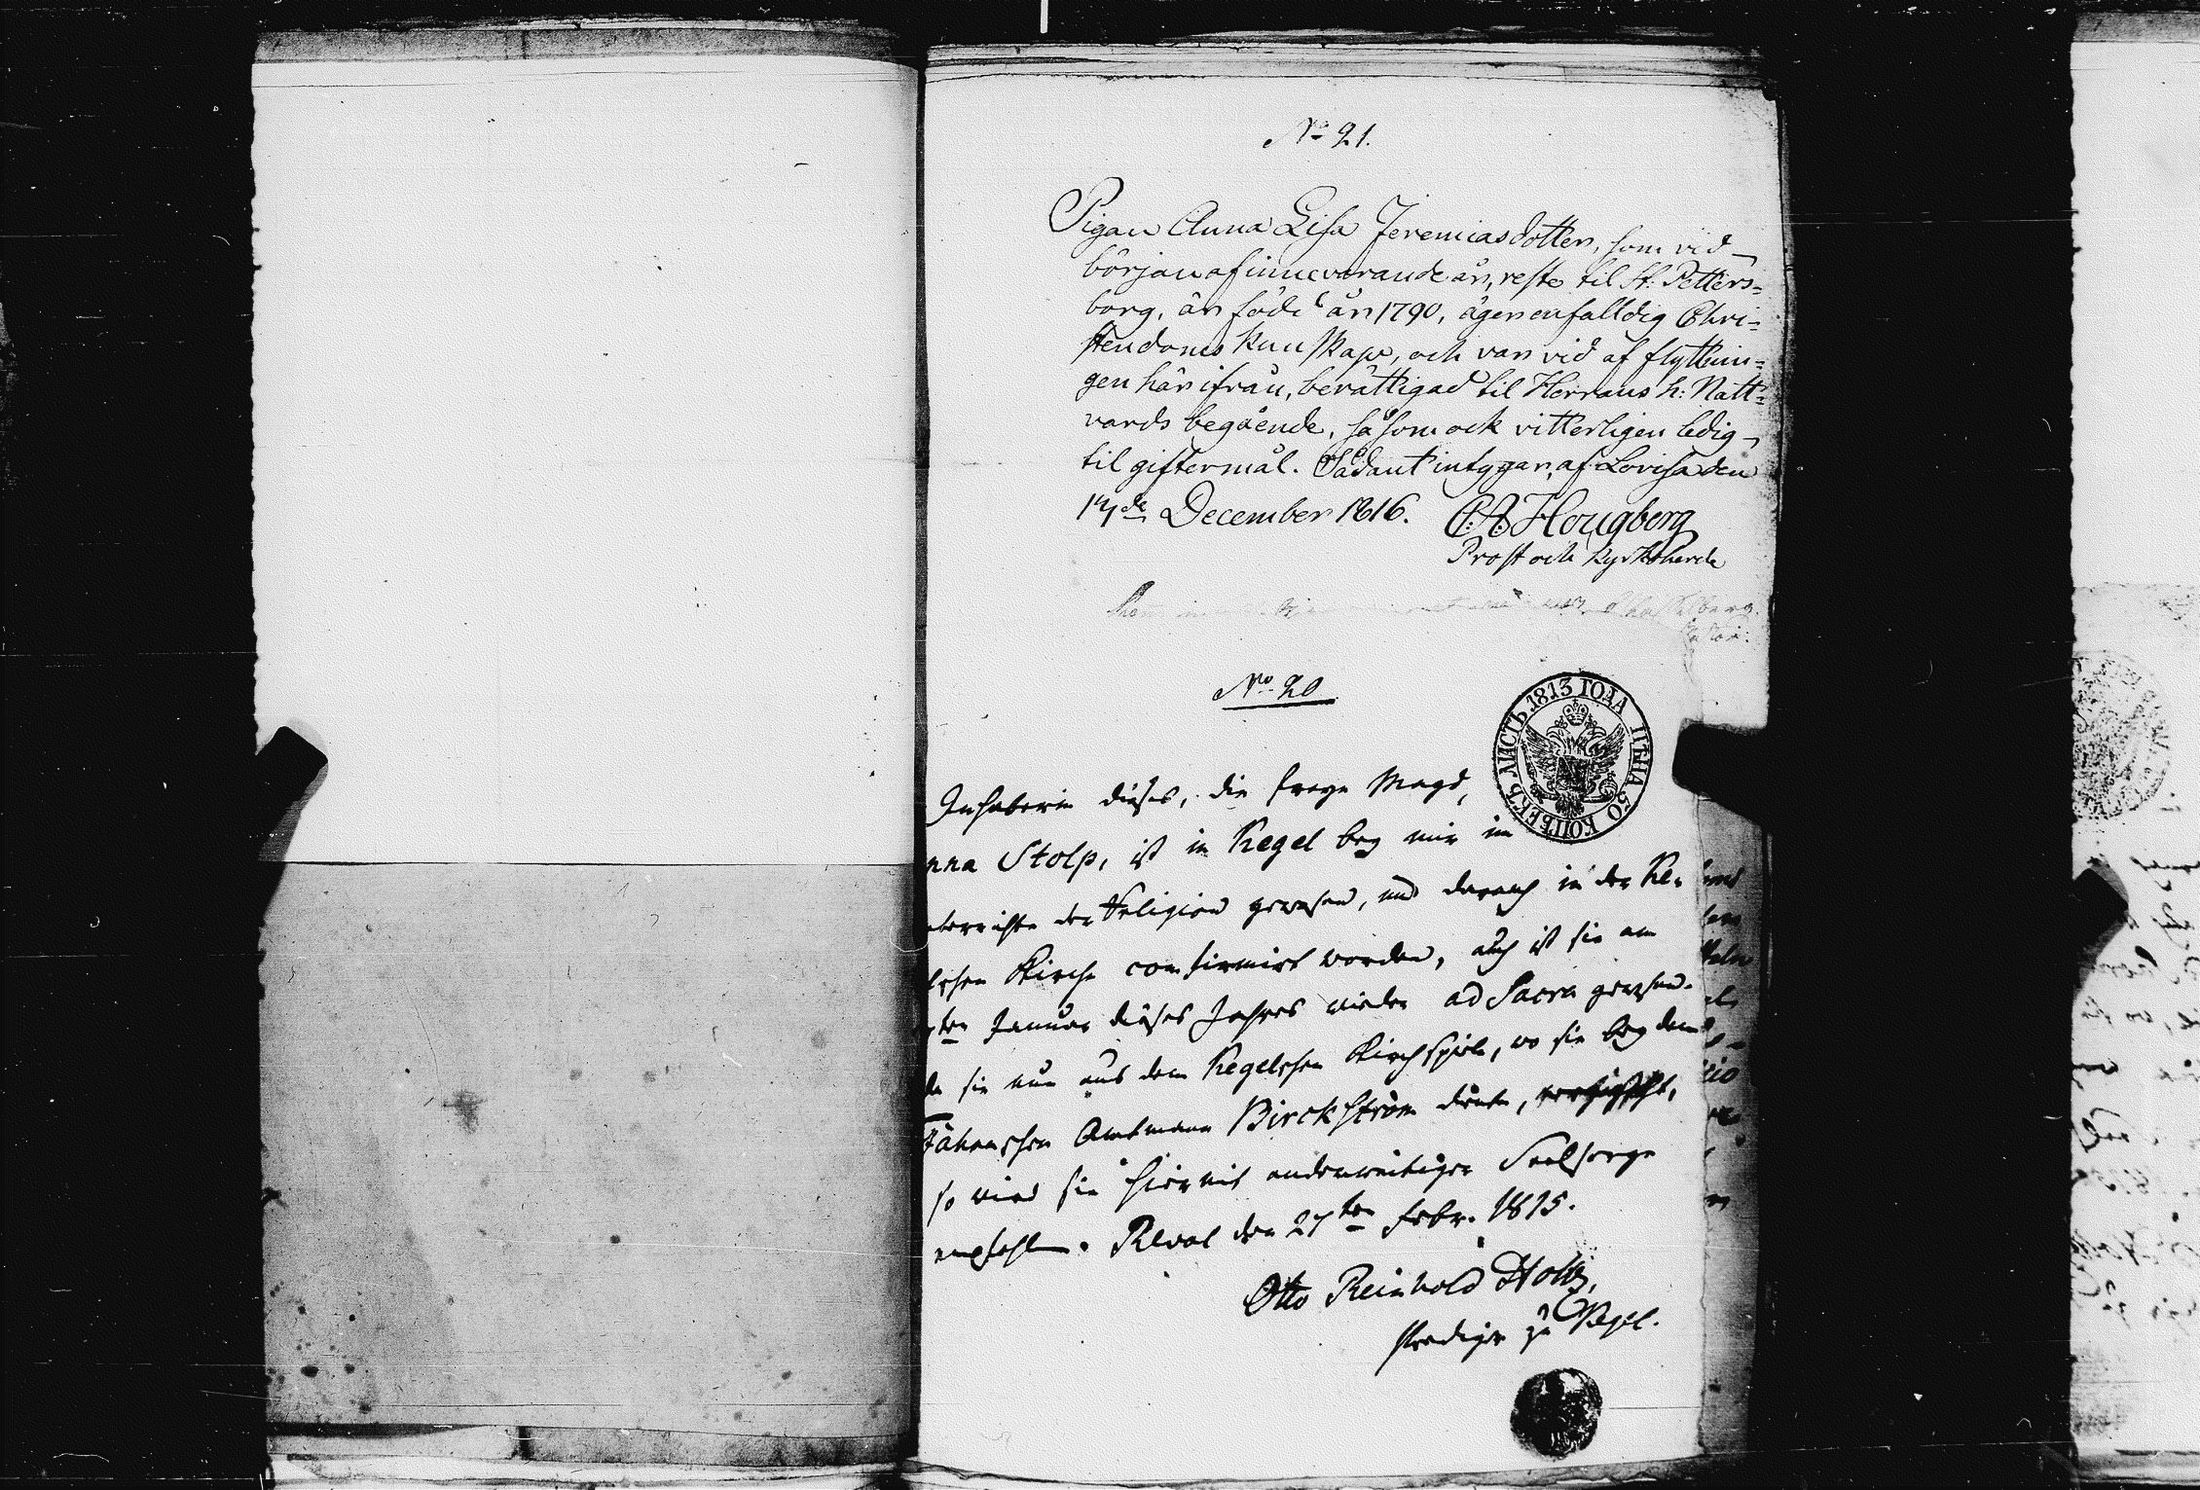 No 21.
Pigan Anna Lisa Jeremiasdotter, som vid
början af innevarande år, reste til St: Petters=
borg, är född år 1790, äger enfalldig Chri=
stendoms kunskap, och var vid afflyttnin=
gen härifrån, berättigad til Herrans h: Natt=
vards begående, såsom ock vitterligen ledig
til giftermål. Sådant intygar, af Lovisa den
17de December 1816. C.A. Hougberg
Prost och Kyrkoherde
No 20
ЛИСТЪ 1813 ГОДА ЦѢНА 50 КОПѢЕКЪ
Inhaberin dieses, die freye Magd,
nna Stolp, ist in Kegel bey mir im
terrichte der Religion gewesen, und darauf in der Ke-
lschen Kirche confirmirt worden, auch ist sie am
ten Januar dieses Jahres wieder ad Sacra gewesen.
da sie nun aus dem Kegelschen Kirchspiele, wo sie bey dem
Amtmann Birckström diente,
so wird sie hiermit anderweitiger Seelsorge
empfohlen. Reval den 27ten Febr. 1815.
Otto Reinhold Holtz,
Prediger zu Kegel.